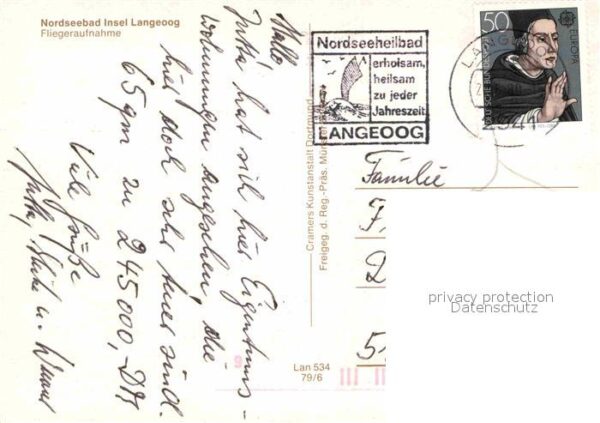 Nordseebad Insel Langeoog
Fliegeraufnahme
Hallo
Jutta hat sich hier Eigentums-
wohnungen angesehen die
hier doch sehr teuer sind.
65 qm zu 245000,- DM
Viele Grüße
Jutta, u.
Cramers Kunstanstalt Dortmund
Freigeg. d. Reg.-Präs.
Lan 534
79/6
Nordseeheilbad
erholsam,
heilsam
zu jeder
Jahreszeit
LANGEOOG
50
EUROPA
DEUTSCHE BUNDESPOST
Familie
7.
2
5
privacy protection
Datenschutz